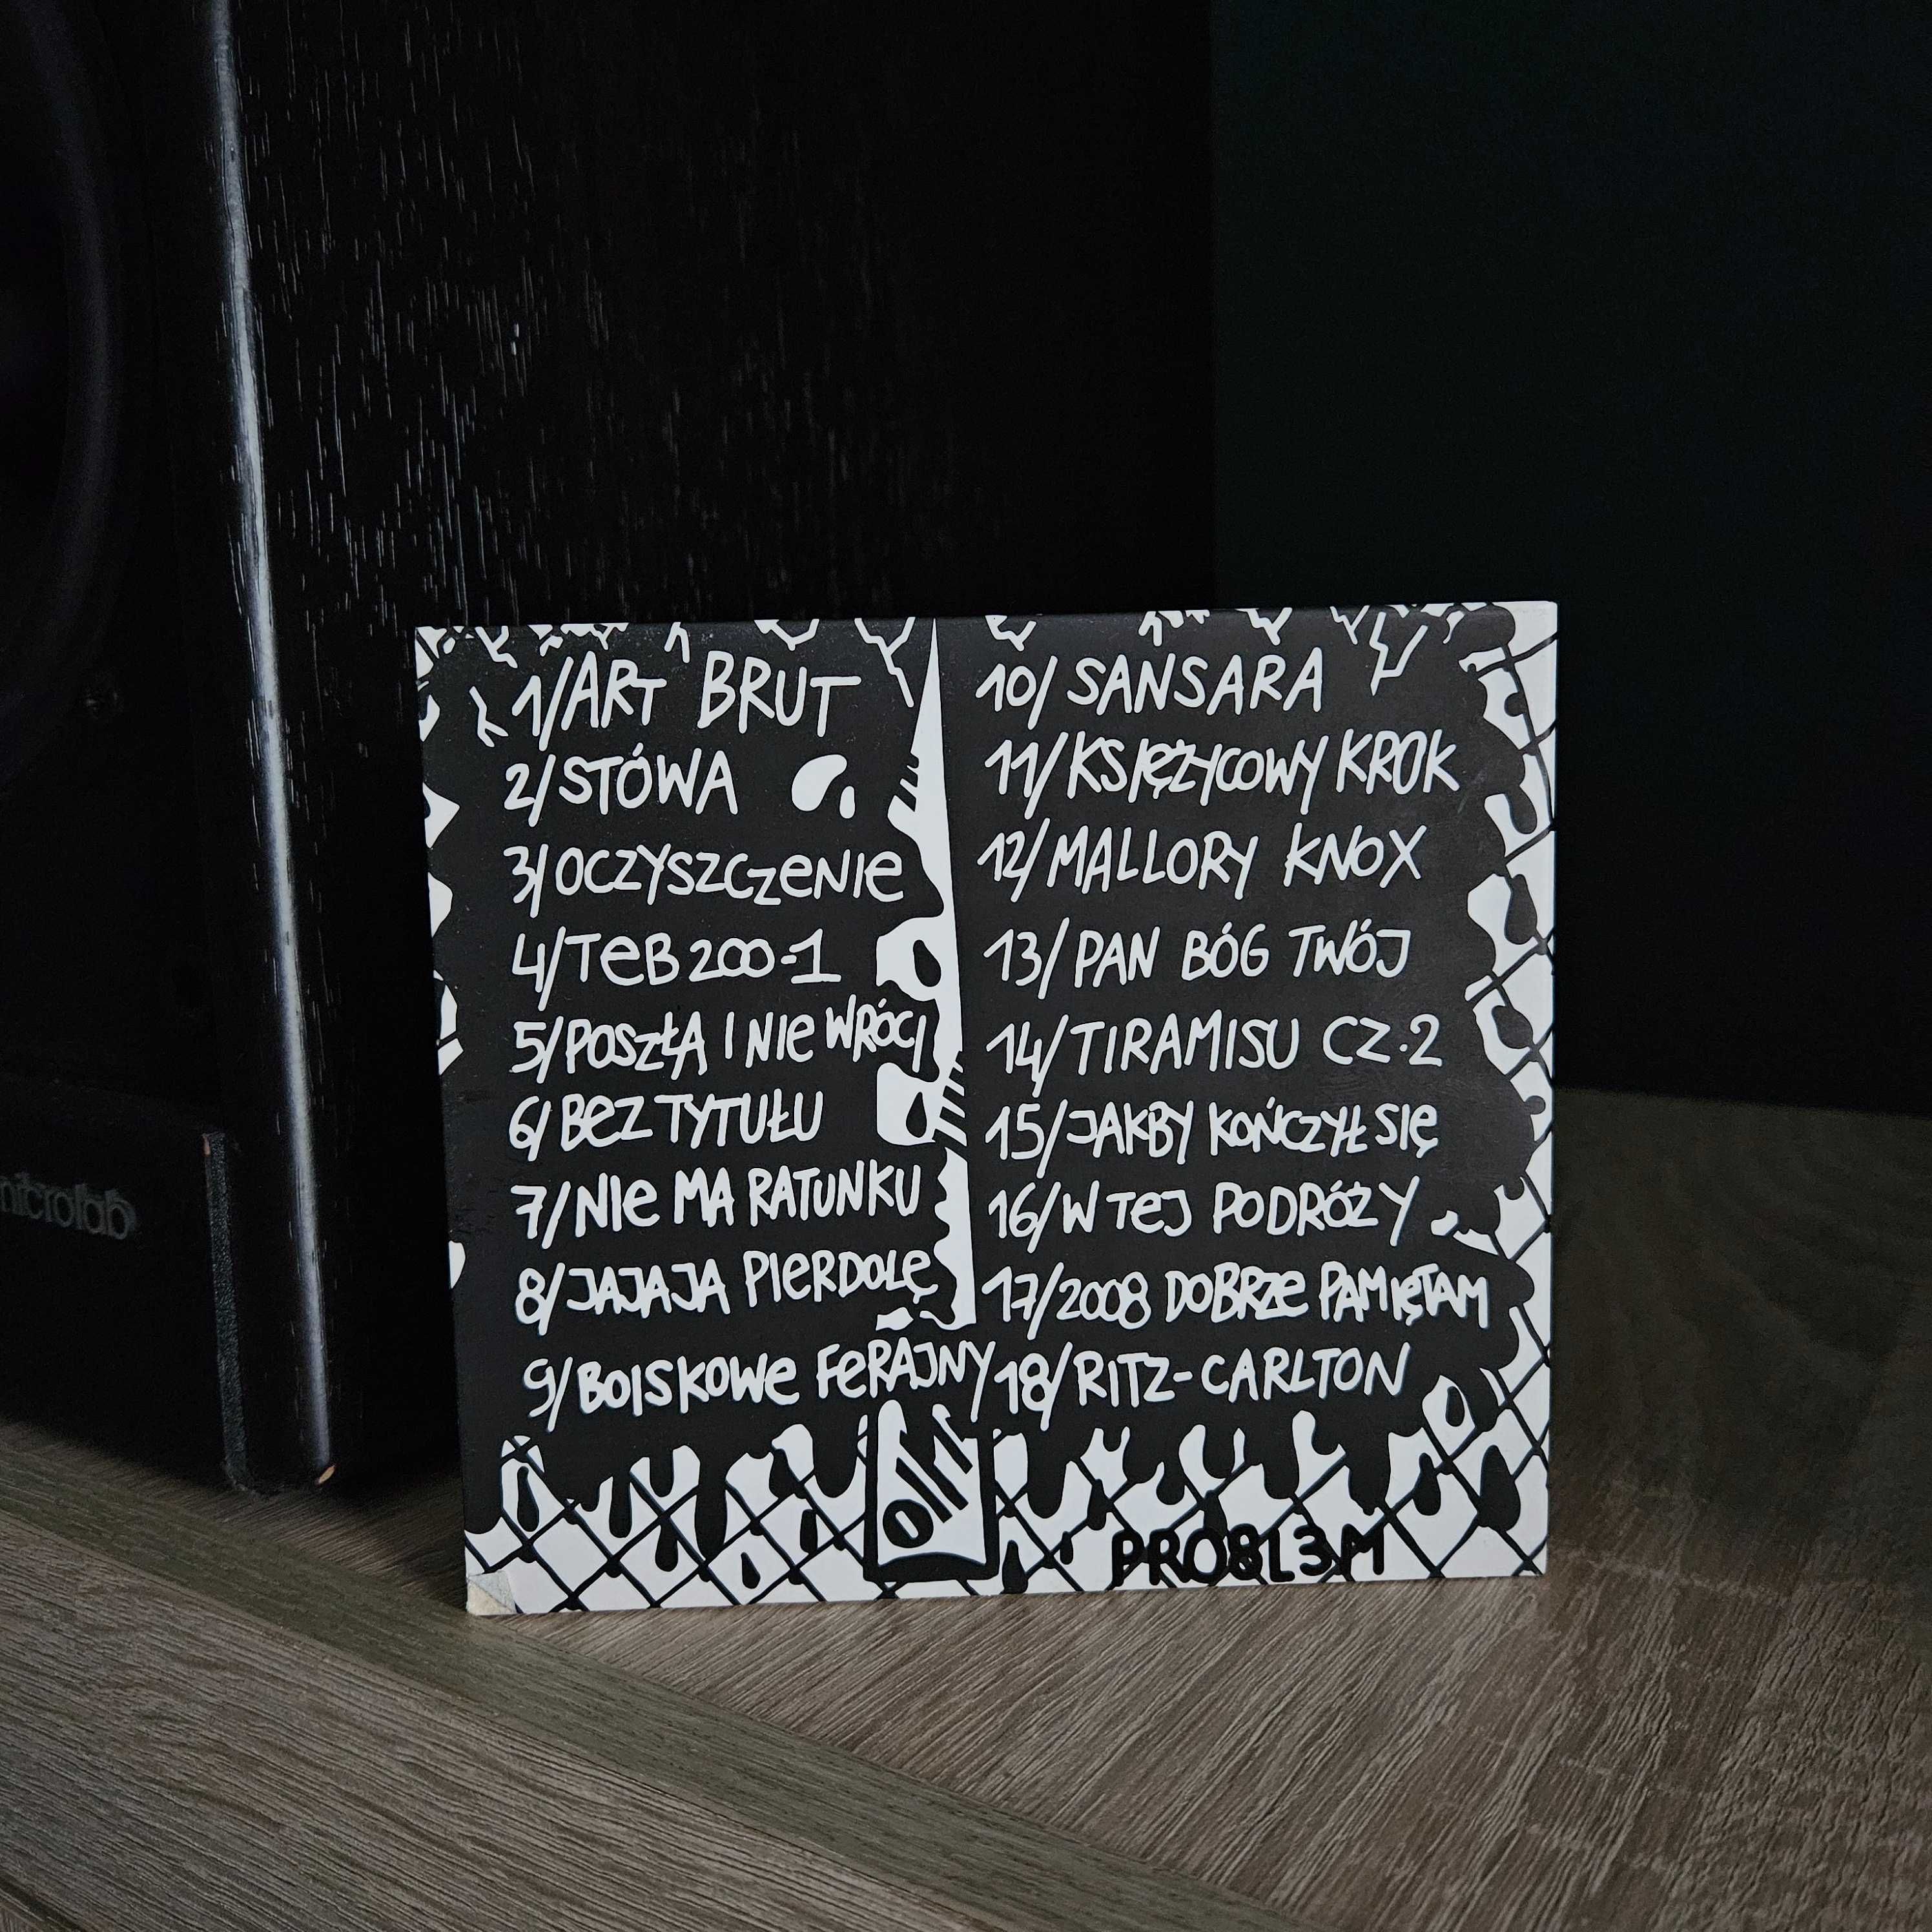 1/ART BRUT
2/STÓWA
3/OCZYSZCZENIE
4/TEB 200-1
5/POSZŁA I NIE WRÓCI
6/BEZ TYTUŁU
7/NIE MA RATUNKU
8/JAJAJA PIERDOLĘ
9/BOISKOWE FERAJNY
10/SANSARA
11/KSIĘŻYCOWY KROK
12/MALLORY KNOX
13/PAN BÓG TWÓJ
14/TIRAMISU CZ.2
15/JAKBY KOŃCZYŁ SIĘ
16/W TEJ PODRÓŻY
17/2008 DOBRZE PAMIĘTAM
18/RITZ-CARLTON
PRO8L3M
microlab